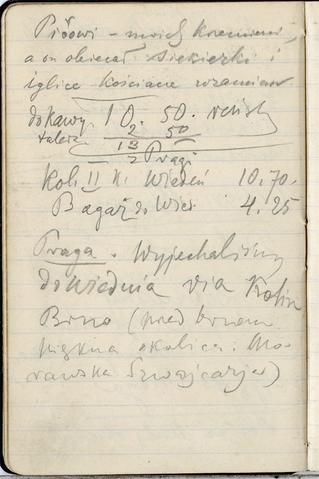 Pičowi – moich krzemieni,
a on obiecał siekierki i
iglice kościane wzamian
do kawy. 10. 50. reszty
talerz 2 50
13
2 Pragi
Kol. II k. Wiedeń 10.70.
Bagaż do Wied. 4.25
Praga. Wyjechaliśmy
do Wiednia via Kolin
Brno (przed Brnem
piękna okolica. Mo-
rawska Szwajcarja)